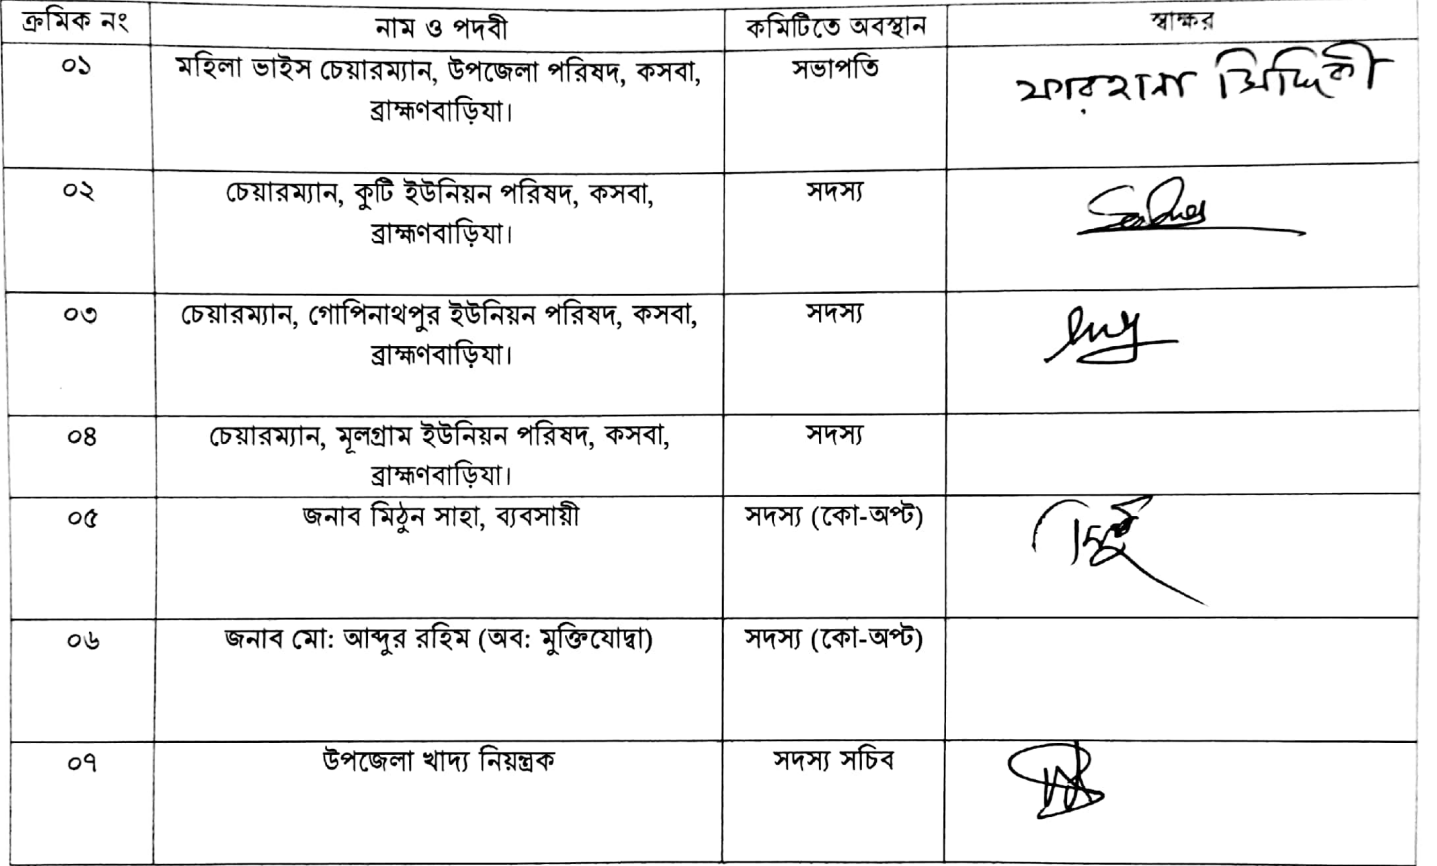 ক্রমিক নং নাম ও পদবী কমিটিতে অবস্থান স্বাক্ষর
০১ মহিলা ভাইস চেয়ারম্যান, উপজেলা পরিষদ, কসবা, সভাপতি ফারহানা সিদ্দিকী
ব্রাহ্মণবাড়িয়া।
০২ চেয়ারম্যান, কুটি ইউনিয়ন পরিষদ, কসবা, সদস্য
ব্রাহ্মণবাড়িয়া।
০৩ চেয়ারম্যান, গোপিনাথপুর ইউনিয়ন পরিষদ, কসবা, সদস্য
ব্রাহ্মণবাড়িয়া।
০৪ চেয়ারম্যান, মূলগ্রাম ইউনিয়ন পরিষদ, কসবা, সদস্য
ব্রাহ্মণবাড়িয়া।
০৫ জনাব মিঠুন সাহা, ব্যবসায়ী সদস্য (কো-অপ্ট)
০৬ জনাব মো: আব্দুর রহিম (অব: মুক্তিযোদ্বা) সদস্য (কো-অপ্ট)
০৭ উপজেলা খাদ্য নিয়ন্ত্রক সদস্য সচিব